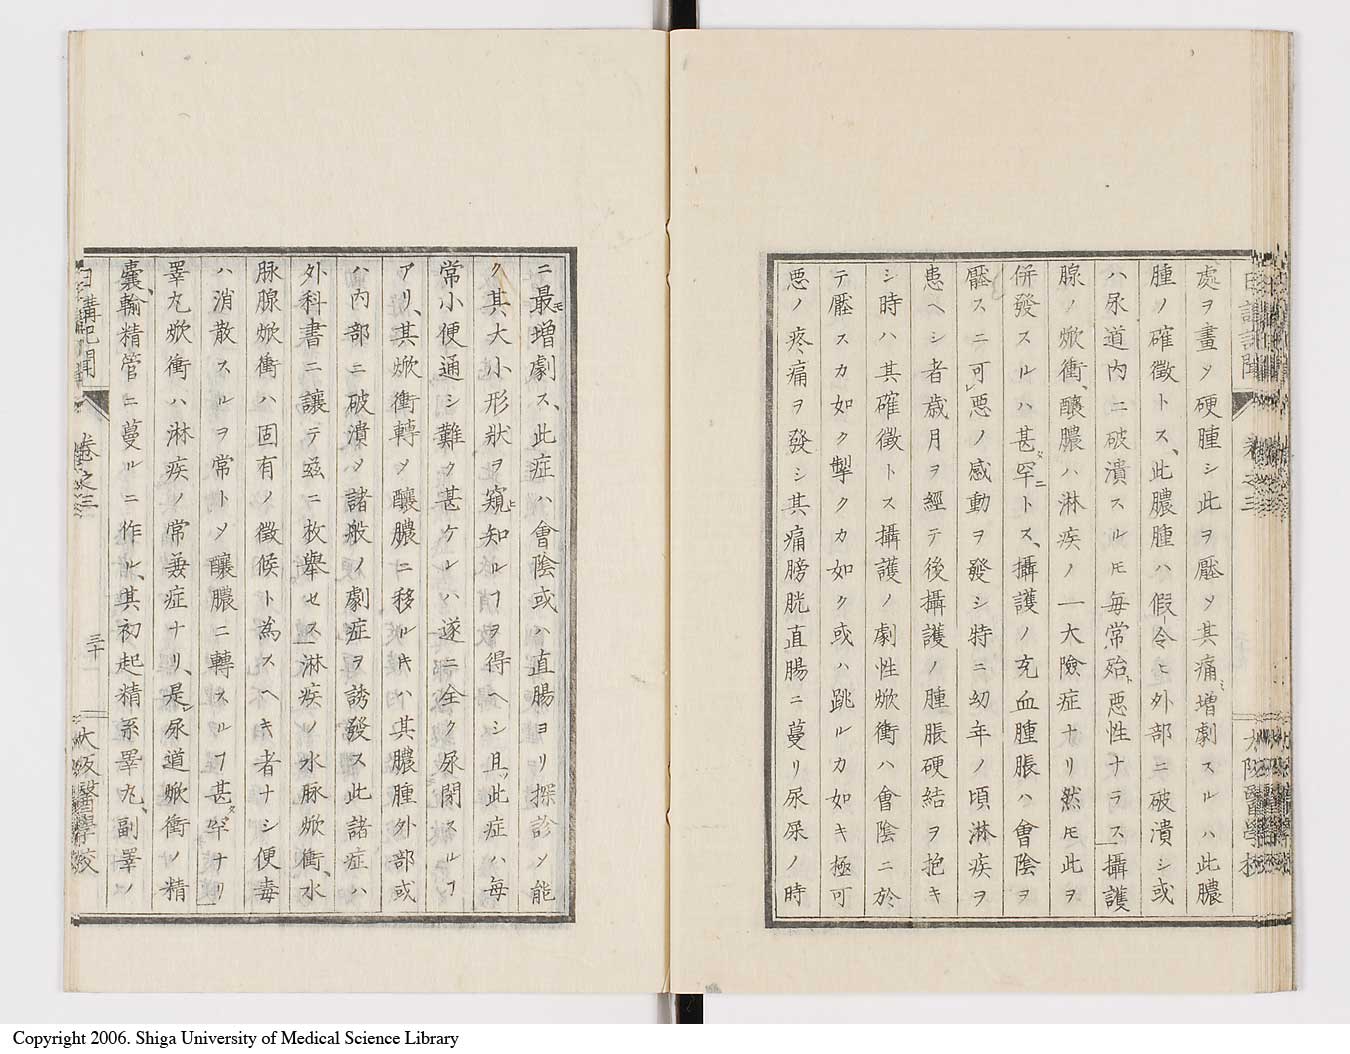 日講記聞
卷之三
大阪醫學校
處ヲ畫メ硬腫シ此ヲ壓メ其痛ミ增劇スルハ此膿
腫ノ確徵トス、此膿腫ハ假令ヒ外部ニ破潰シ或
ハ尿道內ニ破潰スルモ每常殆ト惡性ナラス攝護
腺ノ焮衝、釀膿ハ淋疾ノ一大險症ナリ然モ此ヲ
併發スルハ甚タ罕ニトス、攝護ノ充血腫脹ハ會陰ヲ
壓スニ可惡ノ感動ヲ發シ特ニ幼年ノ頃淋疾ヲ
患ヘシ者歲月ヲ經テ後攝護ノ腫脹硬結ヲ抱キ
シ時ハ其確徵トス攝護ノ劇性焮衝ハ會陰ニ於
テ壓スカ如ク掣クカ如ク或ハ跳ルカ如キ極可
惡ノ疼痛ヲ發シ其痛膀胱直腸ニ蔓リ尿屎ノ時
ニ最モ增劇ス、此症ハ會陰或ハ直腸ヨリ探診メ能
ク其大小形狀ヲ窺ヒ知ルヿヲ得ヘシ且ツ此症ハ每
常小便通シ難ク甚ケレハ遂ニ全ク尿閉スルヿ
アリ、其焮衝轉メ釀膿ニ移ルキハ其膿腫外部或
ハ內部ニ破潰メ諸般ノ劇症ヲ誘發ス此諸症ハ
外科書ニ讓テ茲ニ枚舉セス淋疾ノ水脉焮衝、水
脉腺焮衝ハ固有ノ徵候ト為スヘキ者ナシ便毒
ハ消散スルヲ常トメ釀膿ニ轉スルヿ甚タ罕ナリ
睪丸焮衝ハ淋疾ノ常兼症ナリ、是レ尿道焮衝ノ精
囊、輸精管ニ蔓ルニ作ル、其初起精系睪丸、副睪ノ
日講記聞
卷之三
三十
大阪醫學校
Copyright 2006. Shiga University of Medical Science Library